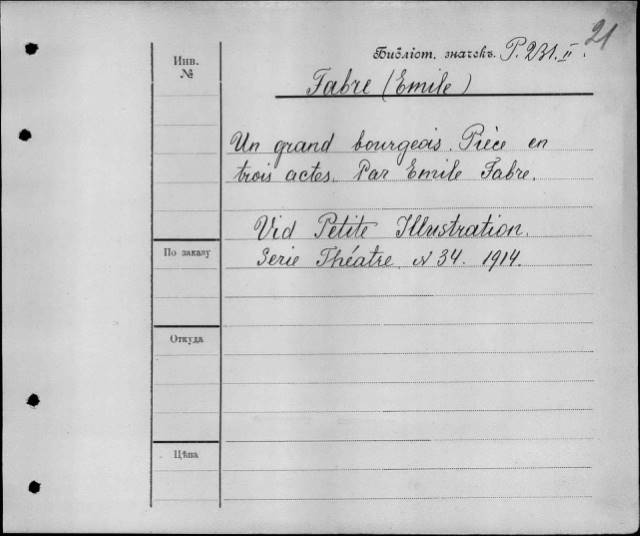 21
Библіот. значекъ. P. 231. II.
Инв.
№
Fabre (Emile)
Un grand bourgeois. Pièce en
trois actes. Par Emile Fabre.
Vid Petite Illustration.
Serie Théatre. N 34. 1914.
По заказу
Откуда
Цѣна